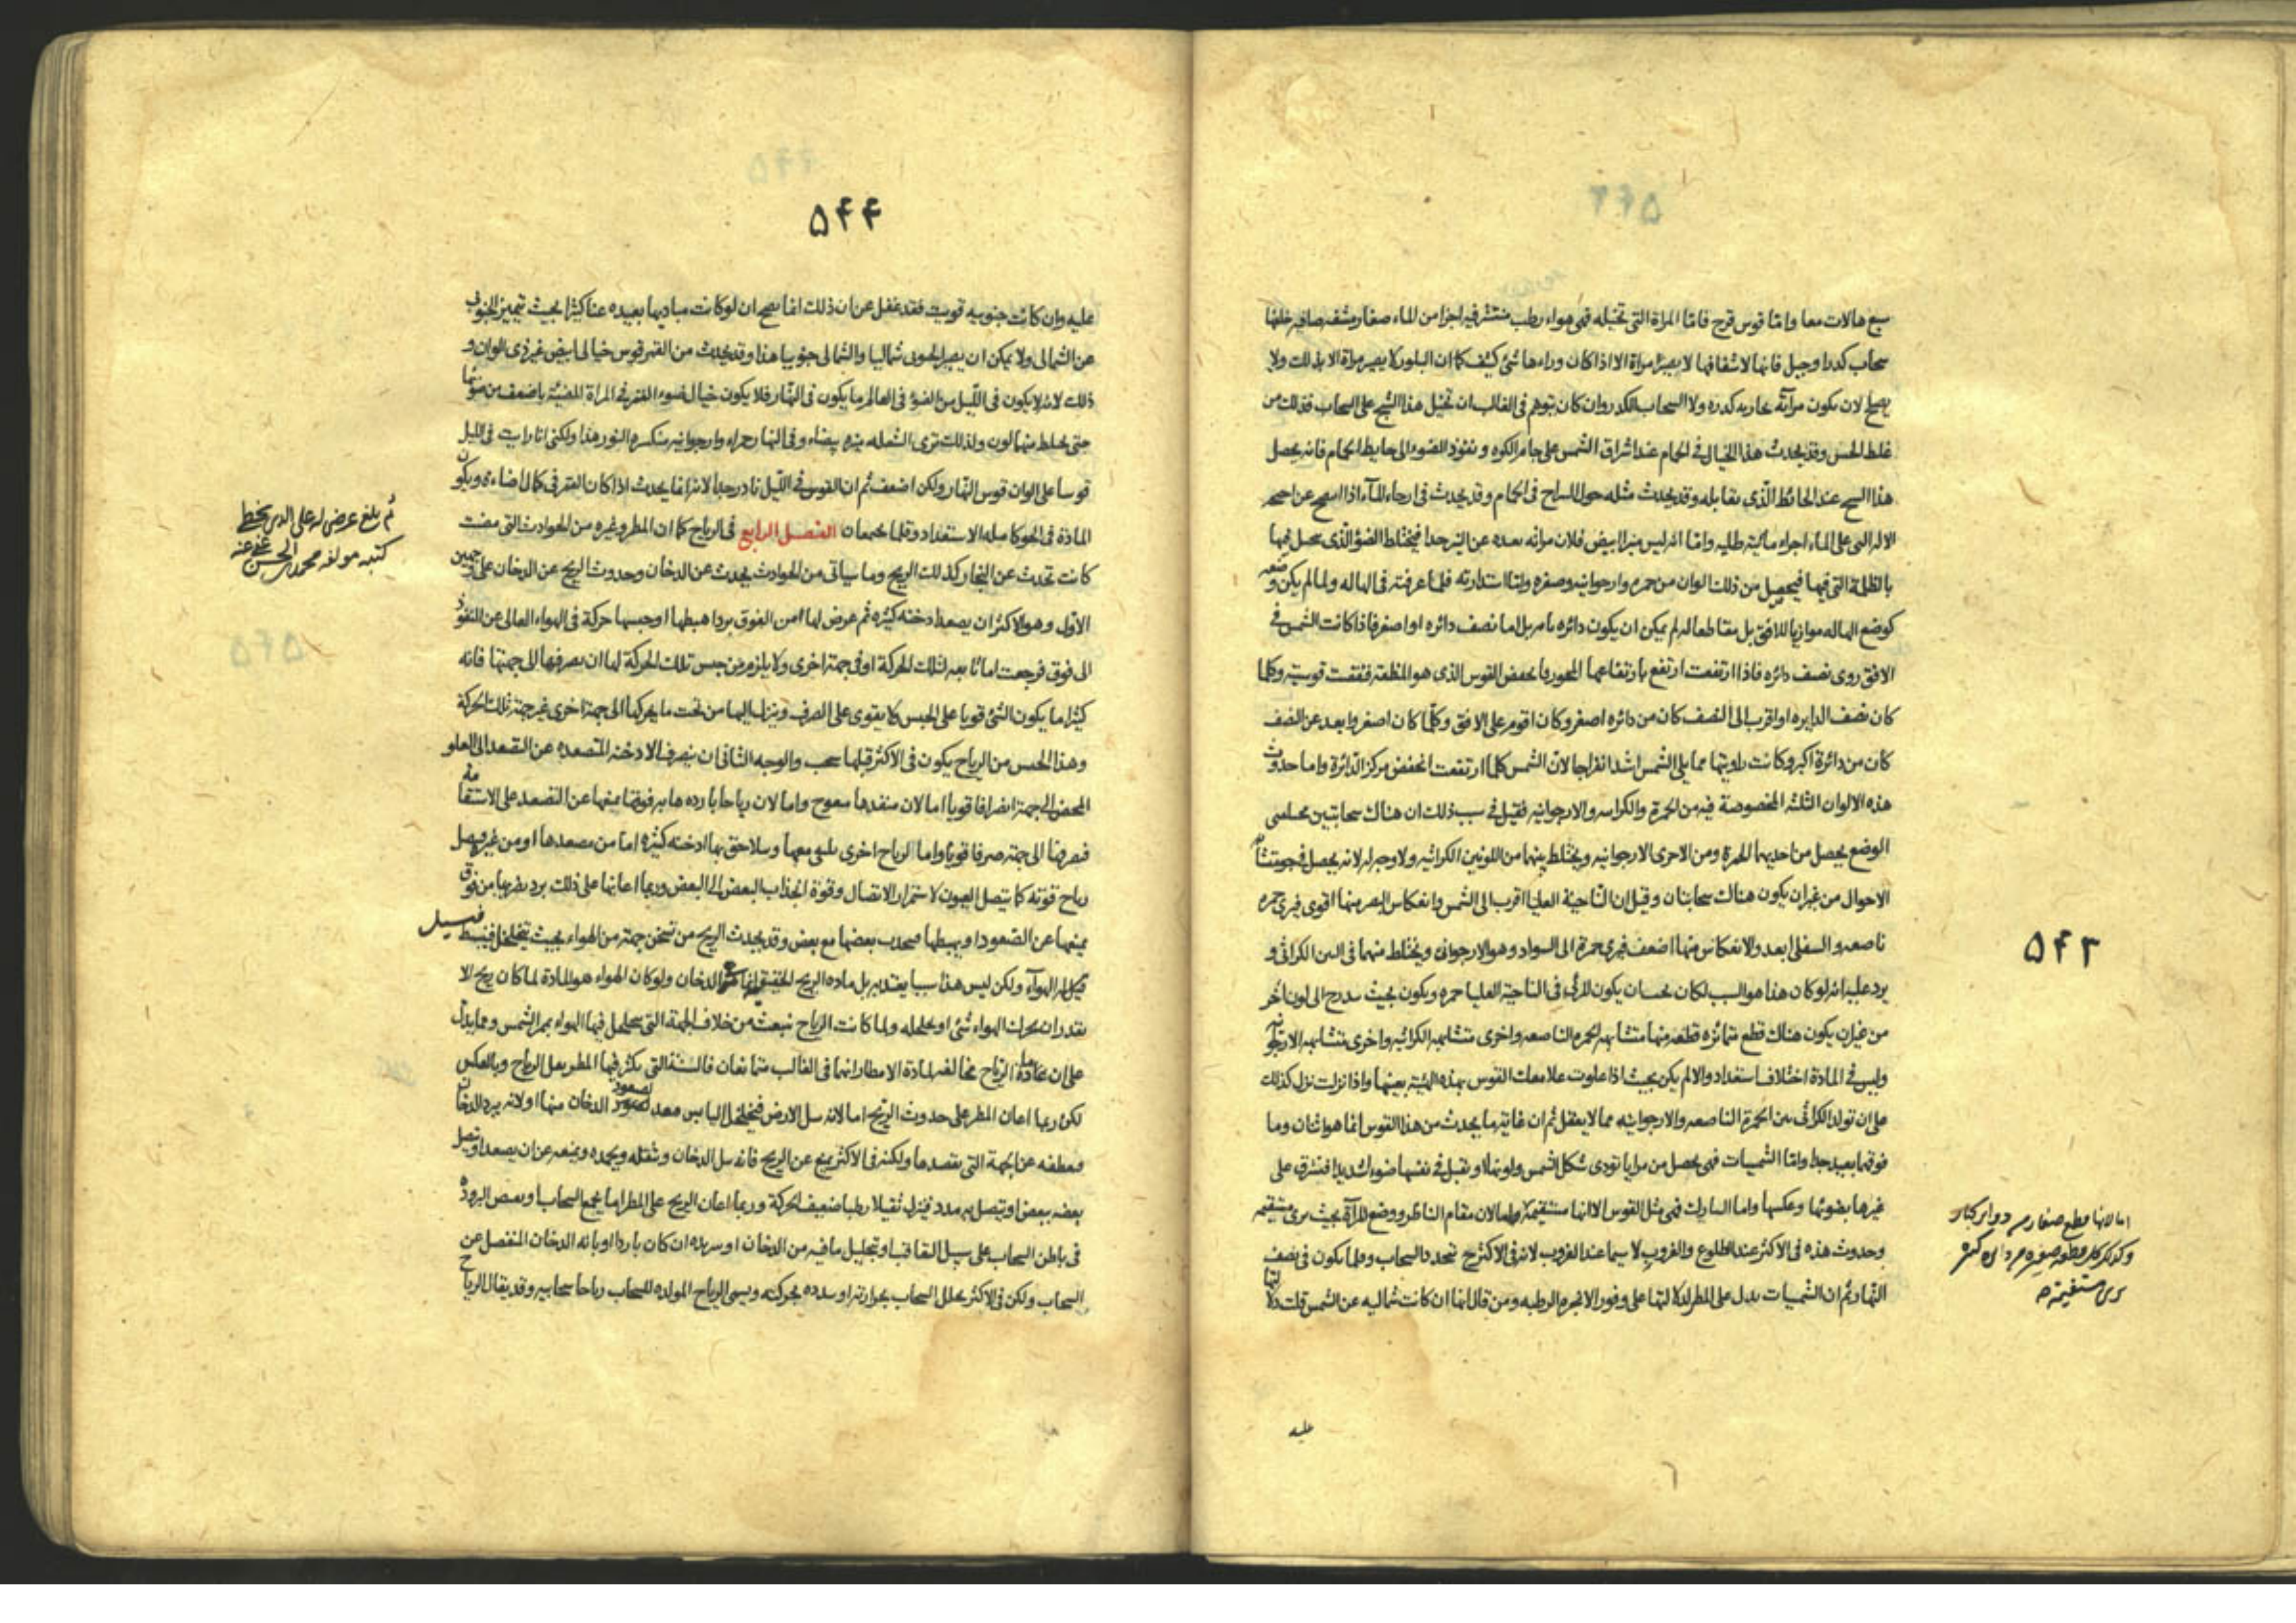 سبع هالات معا واما قوس قزح فاما المراة التى تخيله فهى هواء رطب منتشر فيه اجزا من الماء صغار مشفه صافيه خلفها
سحاب كدر او جبل فانها لاشفافها لا يصير مراة الا اذا كان وراءها شئ كثيف كما ان البلور لا يصير مراة الا بذلك ولا
يصلح لان يكون مرآته بخاريه كدره ولا السحاب الكدر وان كان يتوهم فى الغالب ان تخيل هذا الشبح على السحاب فذلك من
غلط الحس وقد يحدث هذا الخيال فى الحمام عند اشراق الشمس على جام الكوه و نفوذ الضوء الى حايط الحمام فانه يحصل
هذا الشبح عند الحائط الذى يقابله وقد يحدث مثله حول السراج فى الحمام وقد يحدث فى ارجاء الماء اذا
على الماء اجزاء مائية طليه واما انه ليس منيرا ابيض فلان مرآته بعيده عن النير جدا فيختلط الضوء الذى يحصل فيها
بالظلمة التى فيها فيحصل من ذلك الوان من حمره وارجوانيه وصفره واما استدارته فلما عرفته فى الهاله ولما لم يكن وضعه
كوضع الهاله موازيا للافق بل مقاطعا له لم يمكن ان يكون دائره تامه بل اما نصف دائره او اصغر فاذا كانت الشمس فى
الافق روى نصف دائره فاذا ارتفعت ارتفع بارتفاعها المحور فانخفض القوس الذى هو المنطقه فنقصت قوسيته وكلما
كان نصف الدايره او اقرب الى النصف كان من دائره اصغر وكان اقوم على الافق وكلما كان اصغر وابعد عن النصف
كان من دائرة اكبر وكانت زاويتها مما يلى الشمس اشد انفراجا لان الشمس كلما ارتفعت انخفض مركز الدائرة واما حدوث
هذه الالوان الثلثه المخصوصة فيه من الحمرة والكراثيه والارجوانيه فقيل فى سبب ذلك ان هناك سحابتين مختلفتى
الوضع يحصل من احديهما الحمرة ومن الاخرى الارجوانيه ويختلط بينهما من اللونين الكراثيه ولا وجه له لانه يحصل فى جو متشابه
الاحوال من غير ان يكون هناك سحابتان وقيل ان الناحية العليا اقرب الى الشمس وانعكاس البصر منها اقوى فيرى حمره
ناصعه والسفلى ابعد والانعكاس منها اضعف فيرى حمرة الى السواد وهو الارجوانى ويختلط منهما فى البين الكراثى و
يرد عليه انه لو كان هذا هو السبب لكان يجب ان يكون المرئى فى الناحيه العليا حمره ويكون بحيث يتدرج الى لون آخر
من غير ان يكون هناك قطع متمائزه قطعه منها متشابهه الحمره الناصعه واخرى متشابهه الكراثيه واخرى متشابهه الارجوانيه
وليس فى المادة اختلاف استعداد والا لم يكن بحيث اذا علوت علا معك القوس بهذه الهيئة بعينها واذا نزلت نزل كذلك
على ان تولد الكراثى بين الحمرة الناصعه والارجوانيه مما لا يعقل ثم ان غاية ما يحدث من هذا القوس انما هو اثنان وما
فوقهما بعيد جدا واما الشميسات فهى يحصل من مرايا تؤدى شكل الشمس ولونها او تقبل فى نفسها ضوءا شديدا فتشرق على
غيرها بضوئها وعكسها واما النيازك فهى مثل القوس الا انها مستقيمة واما لان مقام الناظر ووضع المرآة بحيث يرى مستقيمه
وحدوث هذه فى الاكثر عند الطلوع والغروب لا سيما عند الغروب لانه فى الاكثر يتمدد السحاب وقلما يكون فى نصف
النهار ثم ان الشميسات يدل على المطر لدلالتها على وفور الابخره الرطبه ومن قال انها ان كانت شماليه عن الشمس قلت دلالتها
عليه
۵۴۳
اما لانها قطع صغار من دوائر كبار
وكذلك كل قطعه صغيره من دائره كبيره
يرى مستقيمة
۵۴۴
عليه وان كانت جنوبيه قويت فقد غفل عن ان ذلك انما يصح ان لو كانت مباديها بعيده عنا كثيرا بحيث تميز الجنوبى
عن الشمالى ولا يمكن ان يصير الجنوبى شماليا والشمالى جنوبيا هذا وقد يحدث من القمر قوس خيالى ابيض غير ذى الوان و
ذلك لانه لا يكون فى الليل من الضوء فى العالم ما يكون فى النهار فلا يكون خيال ضوء القمر فى المراة المضيئة باضعف من ضوئها
حتى يختلط منهما لون ولذلك ترى الشعله بيضاء وفى النهار حمراء وارجوانيه منكسره النور هذا ولكنى انا رايت فى الليل
قوسا على الوان قوس النهار ولكن اضعف ثم ان القوس فى الليل نادر جدا لانه انما يحدث اذا كان القمر فى كمال اضاءه ويكون
المادة فى الجو كامله الاستعداد وقلما يجتمعان الفصل الرابع فى الرياح كما ان المطر وغيره من الحوادث التى مضت
كانت تحدث عن البخار كذلك الريح وما سياتى من الحوادث يحدث عن الدخان وحدوث الريح عن الدخان على وجهين
الاول وهو الاكثر ان يصعد ادخنه كثيره ثم عرض لها من الفوق برد اهبطها او حبسها حركة فى الهواء العالى عن النفوذ
الى فوق فرجعت اما تابعه لتلك الحركة او فى جهة اخرى ولا يلزم من حبس تلك الحركة لها ان يصرفها الى جهتها فانه
كثيرا ما يكون الشئ قويا على الحبس لا يقوى على الصرف وينزل اليها من تحت ما يحركها الى جهة اخرى غير جهة تلك الحركة
وهذا الجنس من الرياح يكون فى الاكثر قبلها سحب والوجه الثانى ان ينصرف الادخنه المتصعده عن التصعد الى العلو
المحض الى جهة انصرافا قويا اما لان منفذها معوج واما لان رياحا بارده هابه فوقها يمنعها عن التصعد على الاستقامه
فيصرفها الى جهة صرفا قويا واما الرياح اخرى يلتقى معها ويتلاحق بها ادخنه كثيره اما من مصعدها او من غيره فيصل
رياح قويه كما يتصل العيون لاستمرار الاتصال وقوة انجذاب البعض الى البعض وربما اعانها على ذلك برد يضربها من فوق
يمنعها عن الصعود او يهبطها بعضها مع بعض وقد يحدث الريح من تسخن جهة من الهواء بحيث يتخلخل فينبسط فيسيل
له الهواء ولكن ليس هذا سببا يعتد به بل ماده الريح الدخان ولو كان الهواء هو المادة لما كان ريح الا
بقدر ان يحرك الهواء شئ او يخلخله ولما كانت الرياح تنبعث من خلاف الجهة التى يتخلخل فيها الهواء بحر الشمس ومما يدل
على ان مادة الرياح مخالفه لمادة الامطار انهما فى الغالب متمانعان فالسنة التى يكثر فيها المطر يقل الرياح وبالعكس
لكن ربما اعان المطر على حدوث الريح اما لانه يبل الارض فيتخلخل اليابس صعود الدخان منها او لانه يبرد الدخان
ويعطفه عن الجهة التى يقصدها ولكنه فى الاكثر يمنع عن الريح فانه يبل الدخان ويثقله ويجمده ويمنعه عن ان يصعد او يتصل
بعضه ببعض او يتصل به مدد فينزل ثقيلا رطبا ضعيف الحركة وربما اعان الريح على المطر اما بجمع السحاب البروده
فى باطن السحاب على سبيل التعاقب او تحليل ما فيه من الدخان او تبريده ان كان باردا او بانه الدخان المنفصل عن
السحاب ولكن فى الاكثر يحلل السحاب بحرارته او يبدده بحركته ويسمى الرياح المولده للسحاب رياحا سحابيه وقد يقال الرياح
ثم بلغ عرضى له على الذى بخطى
كتبه مولفه محمد بن الحسن عفى عنه